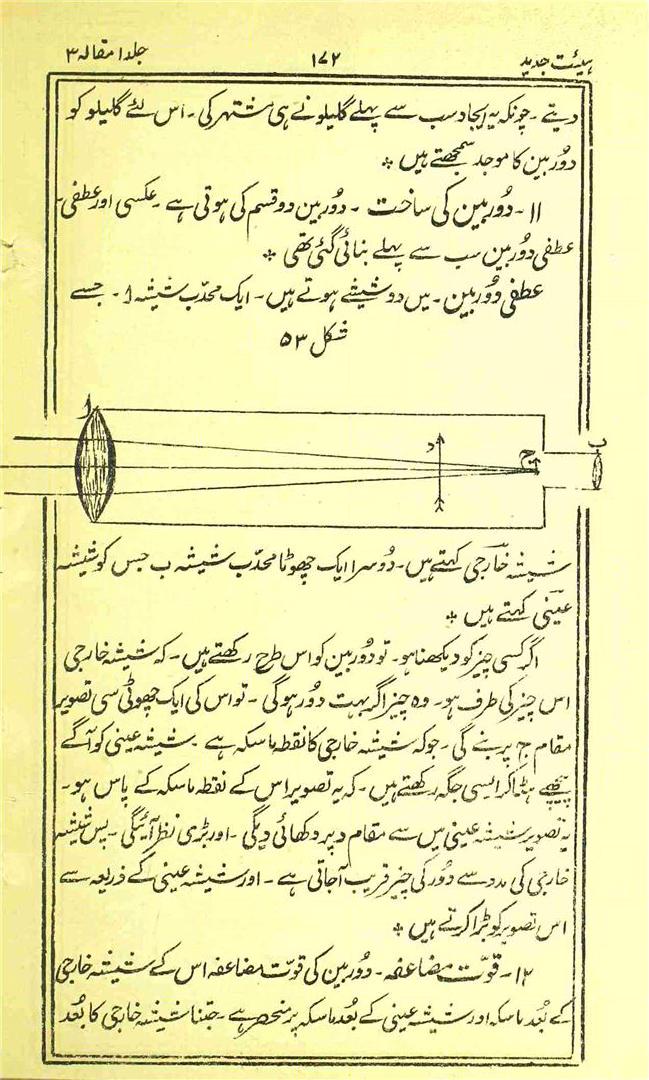 ہیئت جدید ۱۷۲ جلد ۱ مقالہ ۳
دیتے ۔ چونکہ یہ ایجاد سب سے پہلے گلیلو نے ہی مشتہر کی ۔ اس لئے گلیلو کو
دوربین کا موجد سمجھتے ہیں *
۱۱ ۔ دوربین کی ساخت ۔ دوربین دو قسم کی ہوتی ہے ۔ عکسی اور عطفی ۔
عطفی دوربین سب سے پہلے بنائی گئی تھی *
عطفی دوربین ۔ میں دو شیشے ہوتے ہیں ۔ ایک محدّب شیشہ ا ۔ جسے
شکل ۵۳
ا
د
ج
ب
شیشہ خارجی کہتے ہیں ۔ دوسرا ایک چھوٹا محدّب شیشہ ب جس کو شیشہ
عینی کہتے ہیں *
اگر کسی چیز کو دیکھنا ہو ۔ تو دوربین کو اس طرح رکھتے ہیں ۔ کہ شیشہ خارجی
اس چیز کی طرف ہو ۔ وہ چیز اگر بہت دور ہوگی ۔ تو اس کی ایک چھوٹی سی تصویر
مقام ج پر بنے گی ۔ جو کہ شیشہ خارجی کا نقطہ ماسکہ ہے ۔ شیشہ عینی کو آگے
پیچھے ہٹا کر ایسی جگہ رکھتے ہیں ۔ کہ یہ تصویر اس کے نقطہ ماسکہ کے پاس ہو ۔
یہ تصویر شیشہ عینی میں سے مقام د پر دکھائی دیگی ۔ اور بڑی نظر آئیگی ۔ پس شیشہ
خارجی کی مدد سے دور کی چیز قریب آجاتی ہے ۔ اور شیشہ عینی کے ذریعہ سے
اس تصویر کو بڑا کرتے ہیں *
۱۲ ۔ قوّت مضاعفہ ۔ دوربین کی قوّت مضاعفہ اس کے شیشہ خارجی
کے بُعد ماسکہ اور شیشہ عینی کے بُعد ماسکہ پر منحصر ہے ۔ جتنا شیشہ خارجی کا بُعد